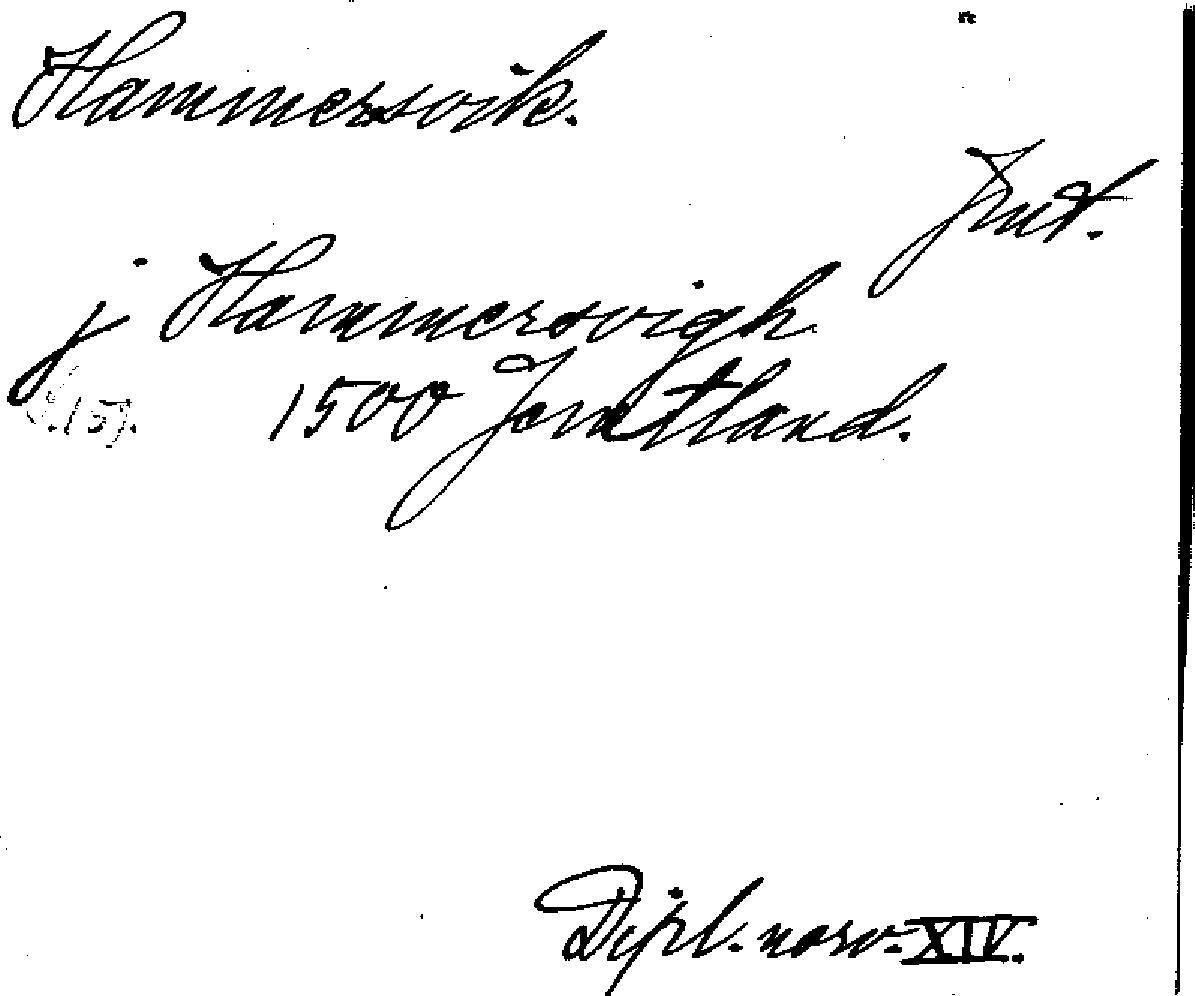 Hammersvik.
Jmt.
j Hammersvigh
1500 Jemtland.
Dipl. norv. XIV.